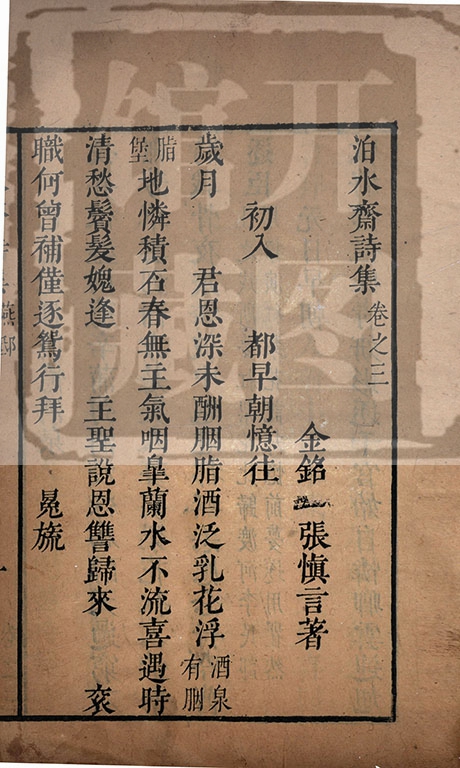 泊水齋詩集 卷之三
金銘 張慎言著
初入 都早朝憶往
歲月 君恩深未酬胭脂酒泛乳花浮 酒泉有胭
脂堡 地憐積石春無王氣咽臯蘭水不流喜遇時
清愁鬢髮媿逢 主聖說恩讐歸來 衮
職何曾補僅逐鴛行拜 冕旒